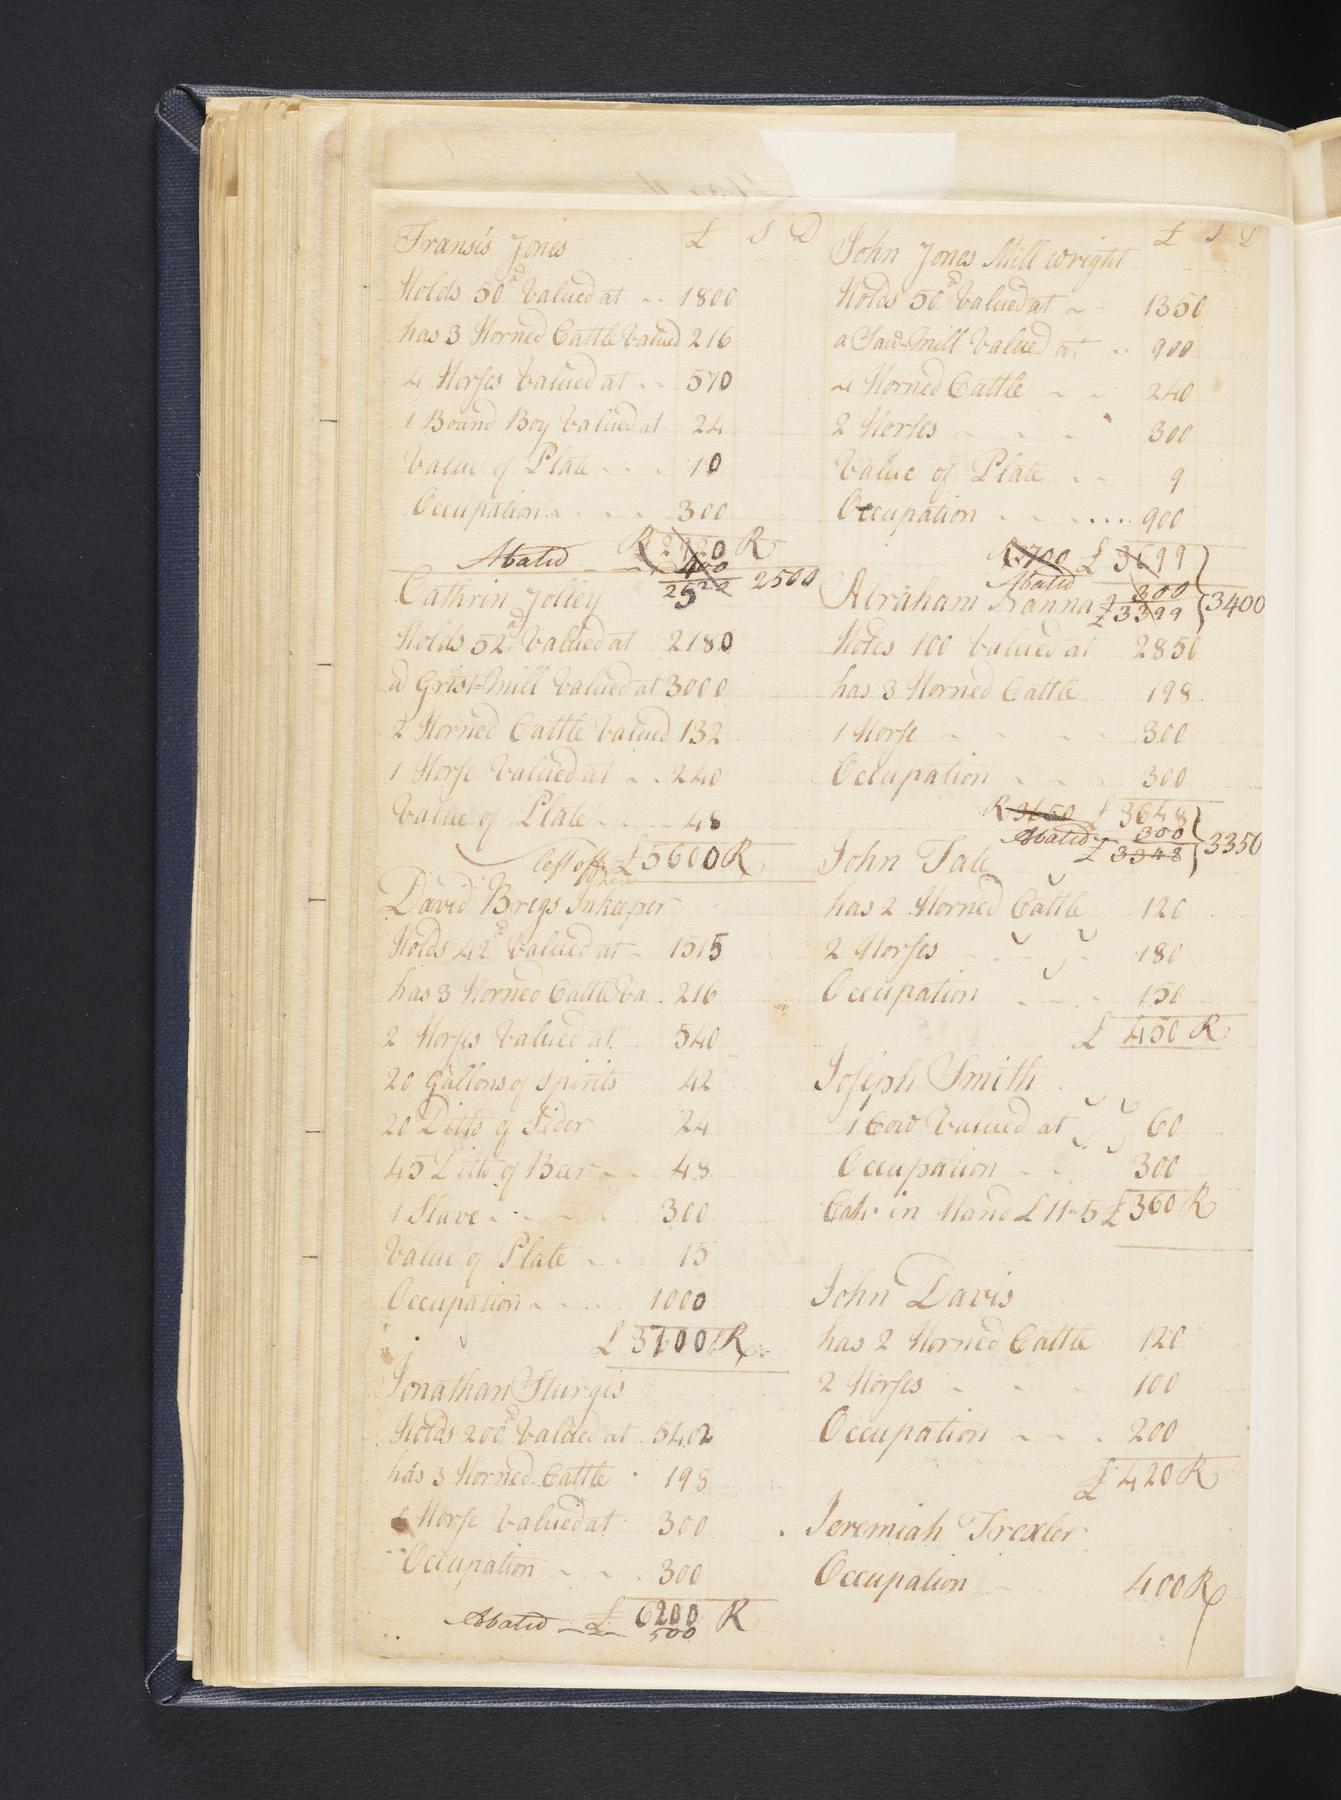 Fransis Jones £ S D
Holds 50 Valued at 1800
has 3 Horned Cattle Valued 216
4 Horses Valued at 570
1 Bound Boy Valued at 24
Value of Plate 10
Occupation 300
R 2920 R
Abated 400
2522 2500
Cathrin Jolley
Holds 52 Valued at 2180
a Grist-Mill Valued at 3000
2 Horned Cattle Valued 132
1 Horse Valued at 240
Value of Plate 48
£ 5600 R
David Brigs Inkeeper
Holds 42 Valued at 1515
has 3 Horned Cattle Va 216
2 Horses Valued at 540
20 Gallons of Spirits 42
20 Ditto of Sider 24
45 Ditto of Beer 48
1 Slave 300
Value of Plate 15
Occupation 1000
£ 3700 R
Jonathan Sturgis
Holds 200 Valued at 5402
has 3 Horned Cattle 198
1 Horse Valued at 300
Occupation 300
Abated £ 6200 R
500
John Jones Mill wright £ S D
Holds 50 Valued at 1350
a Saw-Mill Valued at 900
4 Horned Cattle 240
2 Horses 300
Value of Plate 9
Occupation 900
R 3700 £ 3699
Abated 300
£ 3399 3400
Abraham Hanna
Holds 100 Valued at 2850
has 3 Horned Cattle 198
1 Horse 300
Occupation 300
R 3650 £ 3648
Abated 300
£ 3348 3350
John Tate
has 2 Horned Cattle 120
2 Horses 180
Occupation 150
£ 450 R
Joseph Smith
1 Cow Valued at 60
Occupation 300
Cash in Hand £ 11-5 £ 360 R
John Davis
has 2 Horned Cattle 120
2 Horses 100
Occupation 200
£ 420 R
Jeremiah Trexler
Occupation 400 R